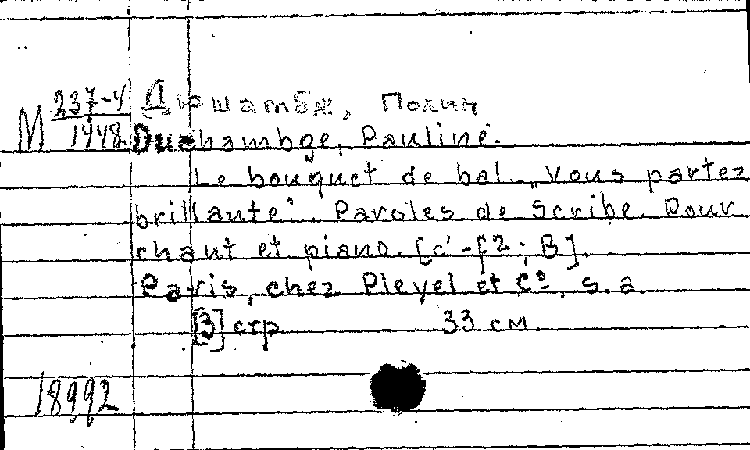 М 237-4/1448. Дюшамбж, Полин
Duchambge, Pauline.
Le bouquet de bal „Vous partez
brillante". Paroles de Scribe. Pour
chant et piano. [c'-f2; B].
Paris, chez Pleyel et Cº, s.a.
[3] стр 33 см.
18992